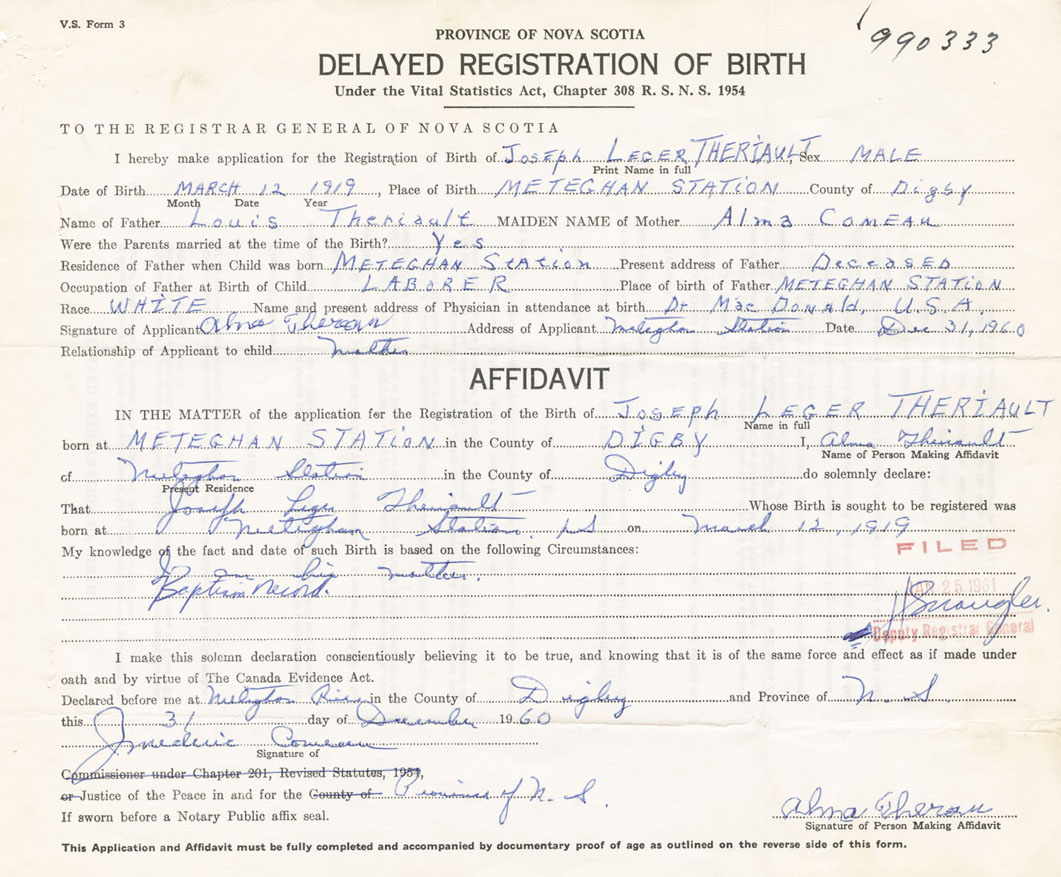 V.S. Form 3
990333
PROVINCE OF NOVA SCOTIA
DELAYED REGISTRATION OF BIRTH
Under the Vital Statistics Act, Chapter 308 R. S. N. S. 1954
TO THE REGISTRAR GENERAL OF NOVA SCOTIA
I hereby make application for the Registration of Birth of Joseph LEGER THERIAULT, Sex MALE
Print Name in full
Date of Birth MARCH 12 1919, Place of Birth METEGHAN STATION County of Digby
Month Date Year
Name of Father Louis Theriault MAIDEN NAME of Mother Alma Comeau
Were the Parents married at the time of the Birth? Yes
Residence of Father when Child was born METEGHAN Station Present address of Father DECEASED
Occupation of Father at Birth of Child LABORER Place of birth of Father METEGHAN STATION
Race WHITE Name and present address of Physician in attendance at birth Dr MacDonald, U.S.A.
Signature of Applicant Alma Therau Address of Applicant Meteghan Station Date Dec 31, 1960
Relationship of Applicant to child mother
AFFIDAVIT
IN THE MATTER of the application for the Registration of the Birth of JOSEPH LEGER THERIAULT
Name in full
born at METEGHAN STATION in the County of DIGBY I, Alma Theriault
Name of Person Making Affidavit
of Meteghan Station in the County of Digby do solemnly declare:
Present Residence
That Joseph Leger Theriault Whose Birth is sought to be registered was
born at Meteghan Station, NS on March 12, 1919
My knowledge of the fact and date of such Birth is based on the following Circumstances:
FILED
I am his mother.
Baptism Record.
25 1961
Deputy Registrar General
I make this solemn declaration conscientiously believing it to be true, and knowing that it is of the same force and effect as if made under
oath and by virtue of The Canada Evidence Act.
Declared before me at Meteghan River in the County of Digby and Province of N. S.
this 31 day of December 1960
Comeau
Signature of
Commissioner under Chapter 201, Revised Statutes, 1954,
or Justice of the Peace in and for the County of Province of N. S.
If sworn before a Notary Public affix seal.
Alma Therau
Signature of Person Making Affidavit
This Application and Affidavit must be fully completed and accompanied by documentary proof of age as outlined on the reverse side of this form.